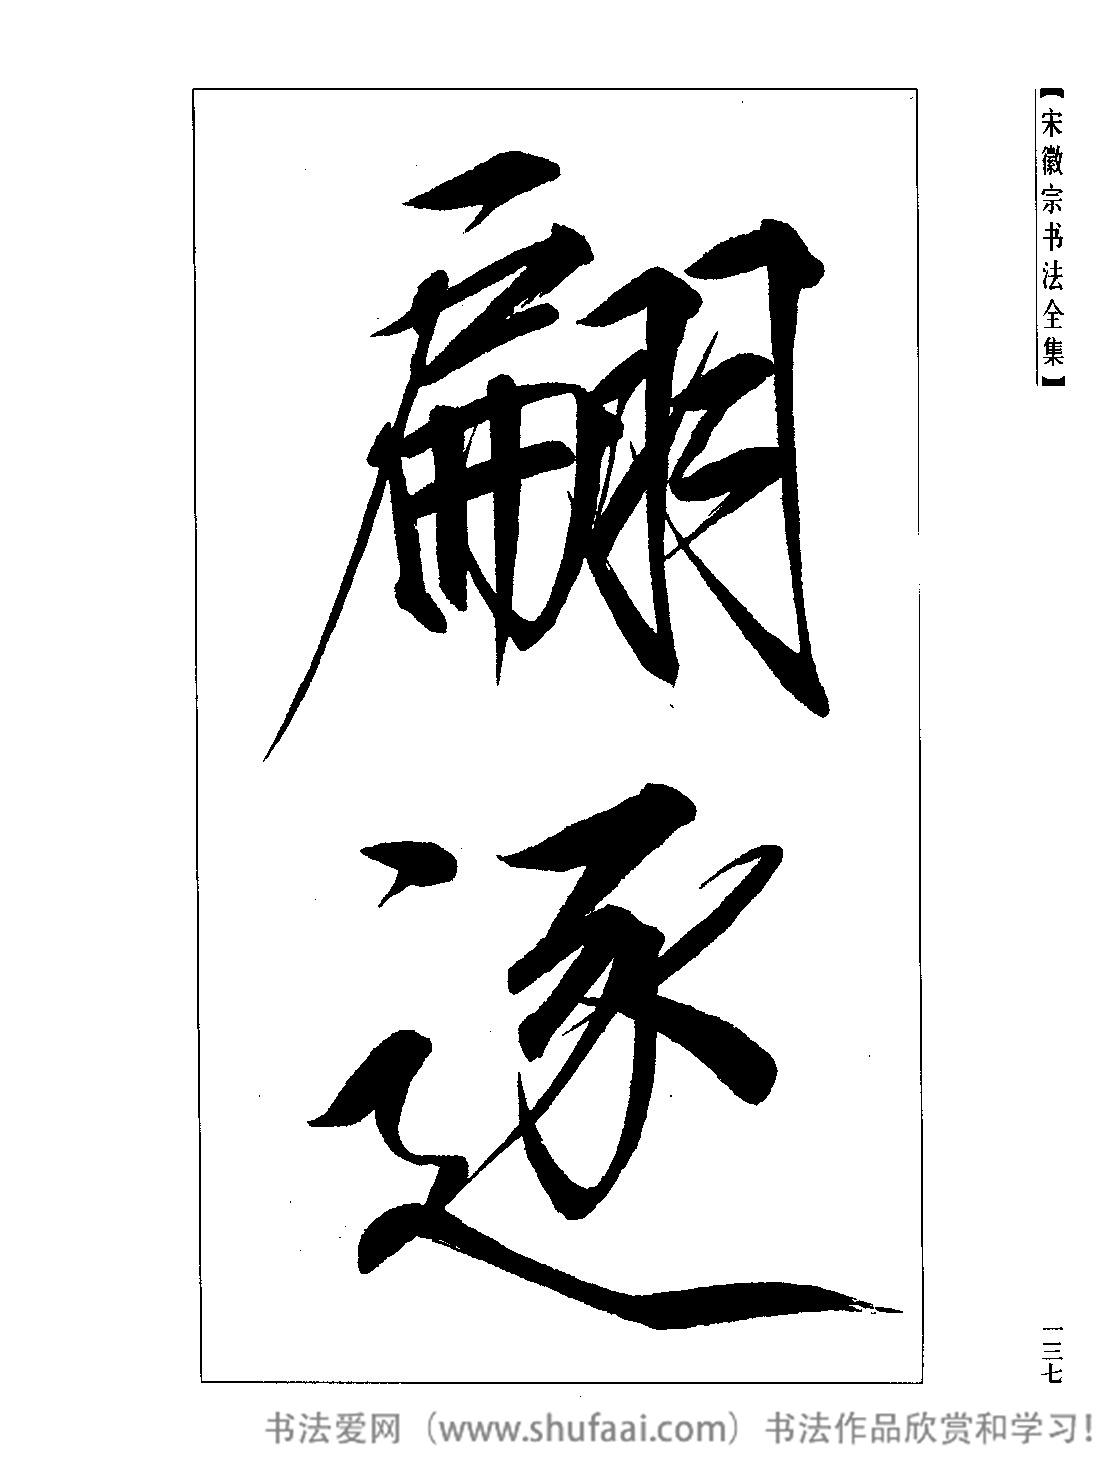 【宋徽宗书法全集】
翩
逐
一三七
书法爱网（www.shufaai.com）书法作品欣赏和学习！